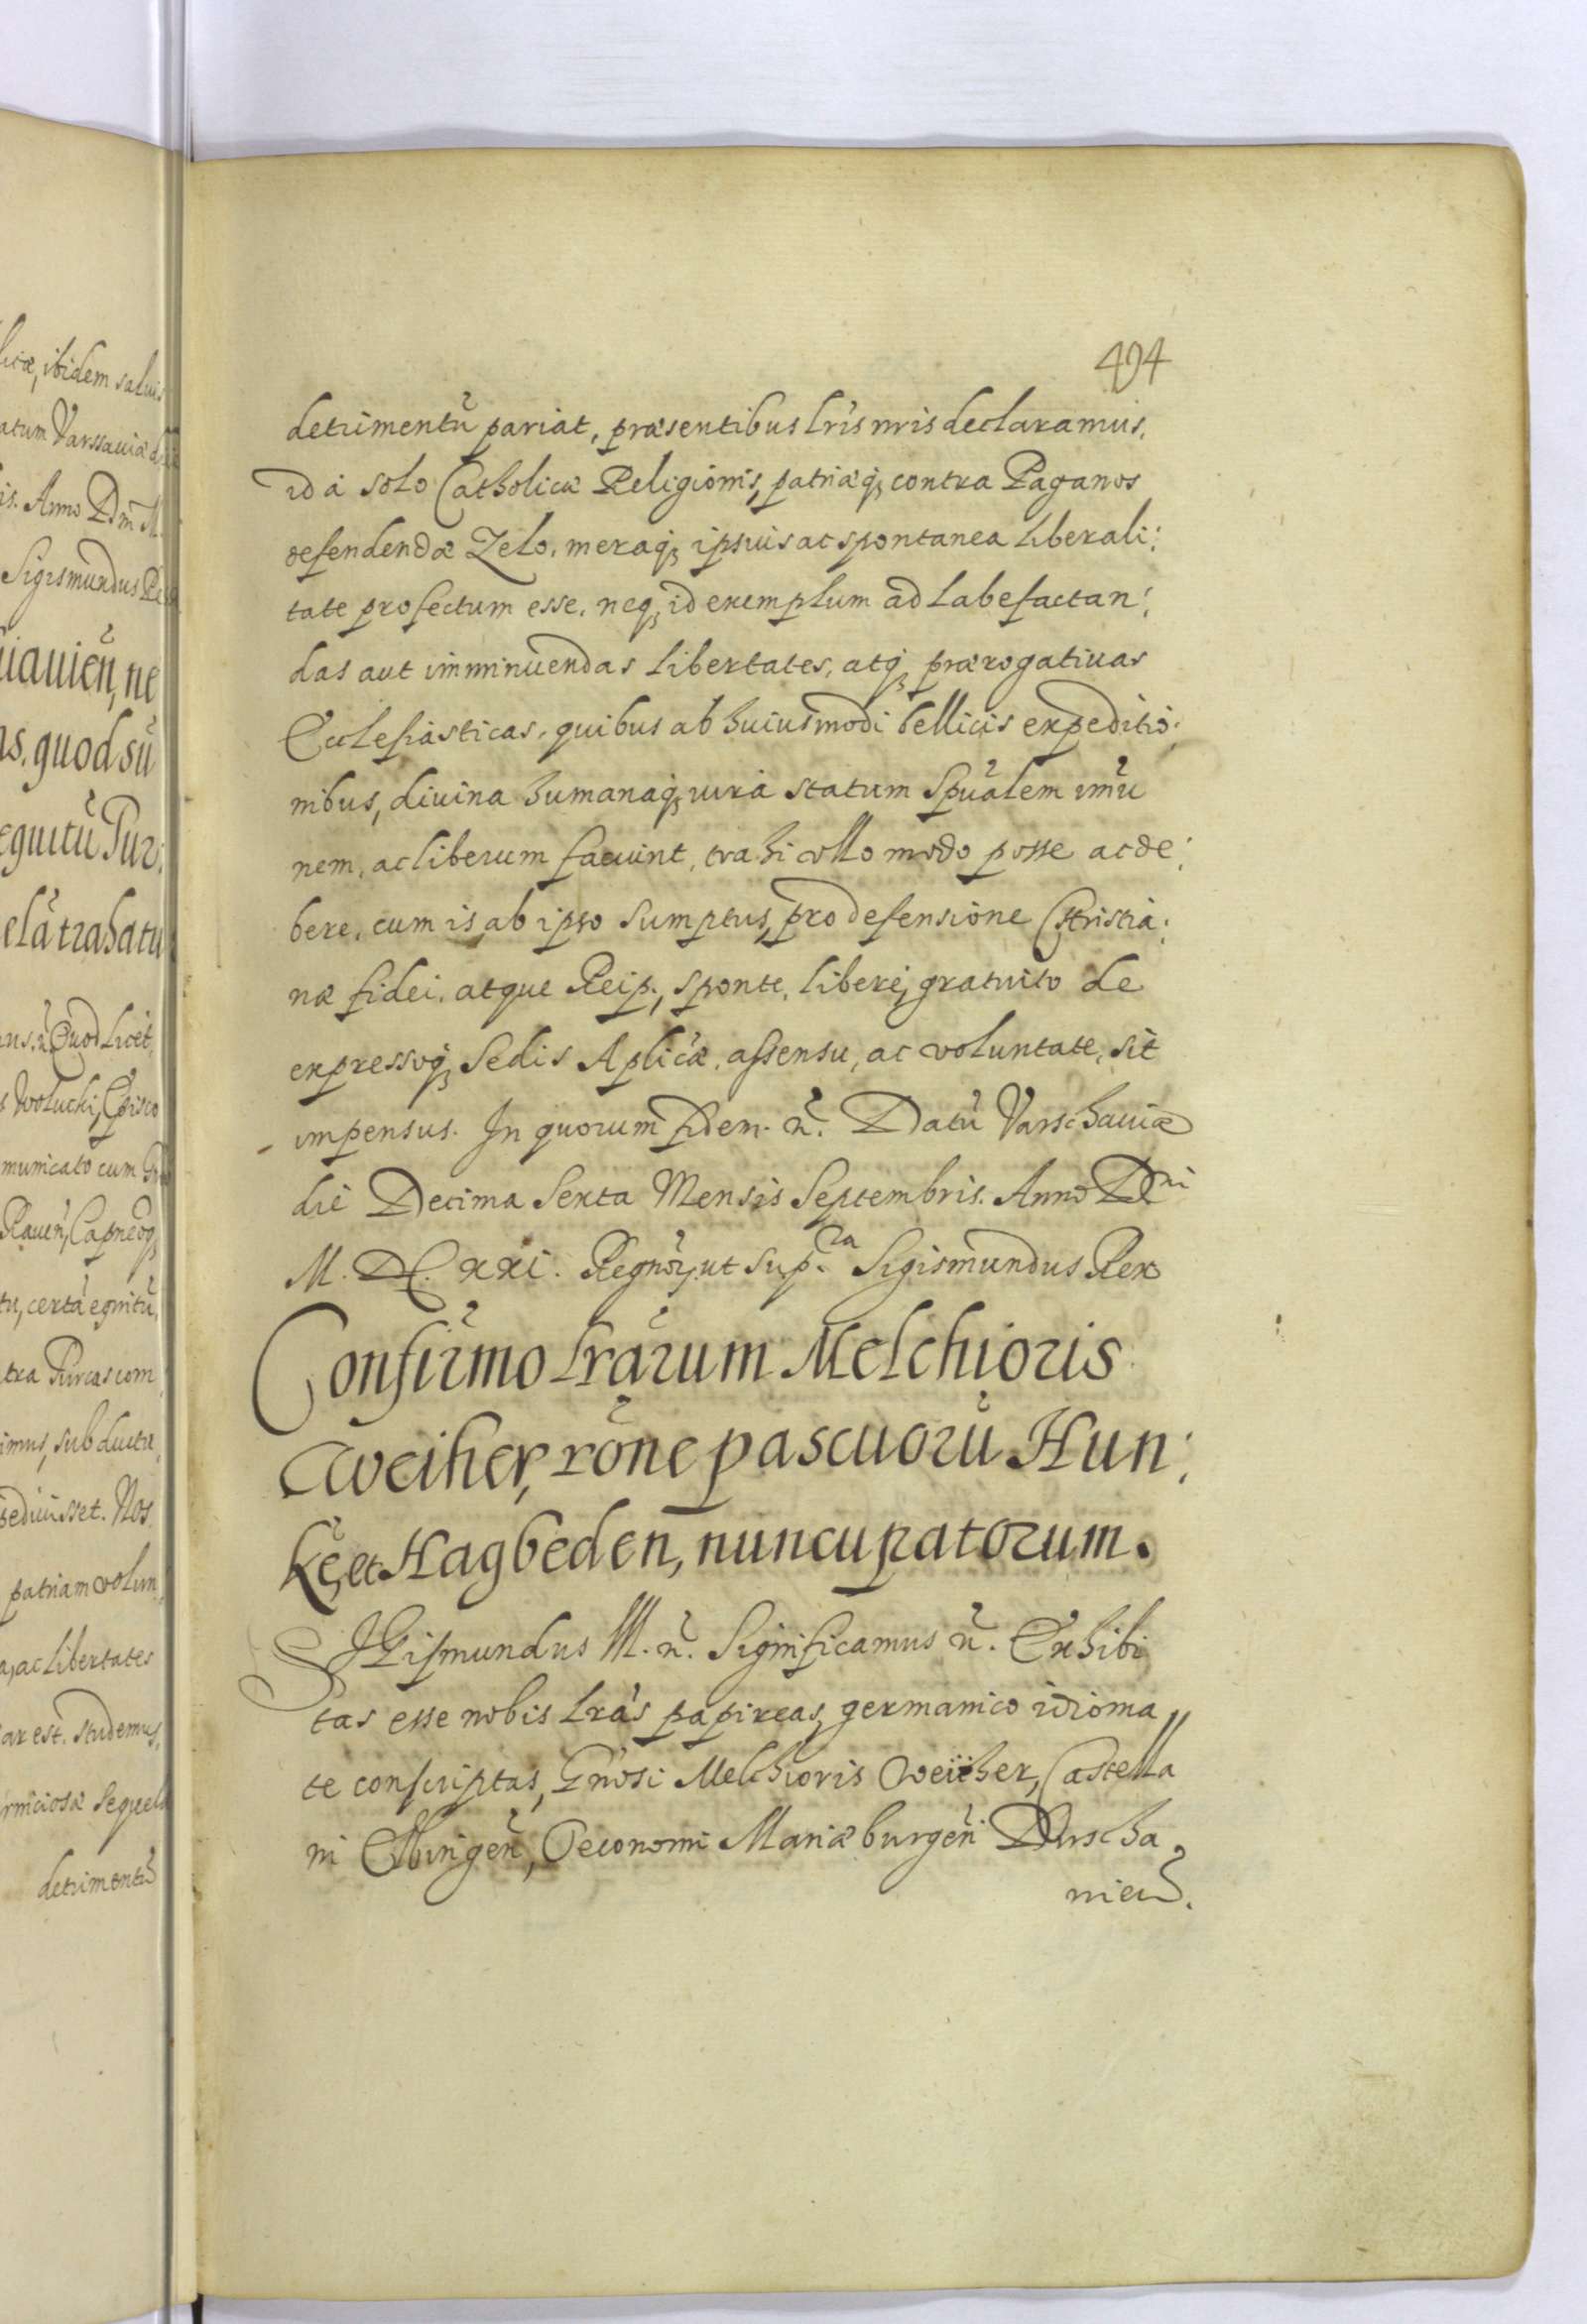 licæ, ibidem saluis
atum Varssauiæ d
is. Anno Dni M.
Sigismundus Re
uiauien, ne
as, quod sũ
equitũ Tur:
elâ trahatu
Quod licet,
s Wolucki, Episco
municato cum
Rauen, Capneoq
tu, certâ equitũ,
tra Turcas com
imus, sub ductu
pediuisset. Nos
patriam volun
a, ac libertates
ar est. studemus,
rniciosæ sequela
detrimentũ
494
detrimentũ pariat, præsentibus lris nris declaramus,
id à solo Catholicæ Religionis, patriæq; contra Paganos
defendendæ Zelo, meraq; ipsius ac spontanea liberali:
tate profectum esse, neq; id exemplum ad labefactan:
das aut imminuendas libertates, atq; prærogatiuas
Ecclesiasticas, quibus ab huiusmodi bellicis expeditio:
nibus, diuina humanaq; iura statum Spũalem imũ
nem, ac liberum faciunt, trahi vllo modo posse ac de:
bere, cum is ab ipso sumptus, pro defensione Christia:
næ fidei, atque Reip., sponte, liberè, gratuito de
expressoq; Sedis Aplicæ, assensu, ac voluntate, sit
impensus. In quorum fidem. &. Datũ Varschauiæ
die Decima Sexta Mensis Septembris. Anno Dni
M. DC. XXI. Regnor, ut supra Sigismundus Rex
Confirmo Lrarum Melchioris
Weiher, rõne pascuorũ Hun:
ke, et Hagbeden, nuncupatorum.
SIGismundus III. &. Significamus &. Exhibi
tas esse nobis Lras papireas, germanico idioma
te conscriptas, Gnosi Melchioris Weiher, Castella
ni Elbingen, Oeconomi Mariæburgen Dirscha
uien.